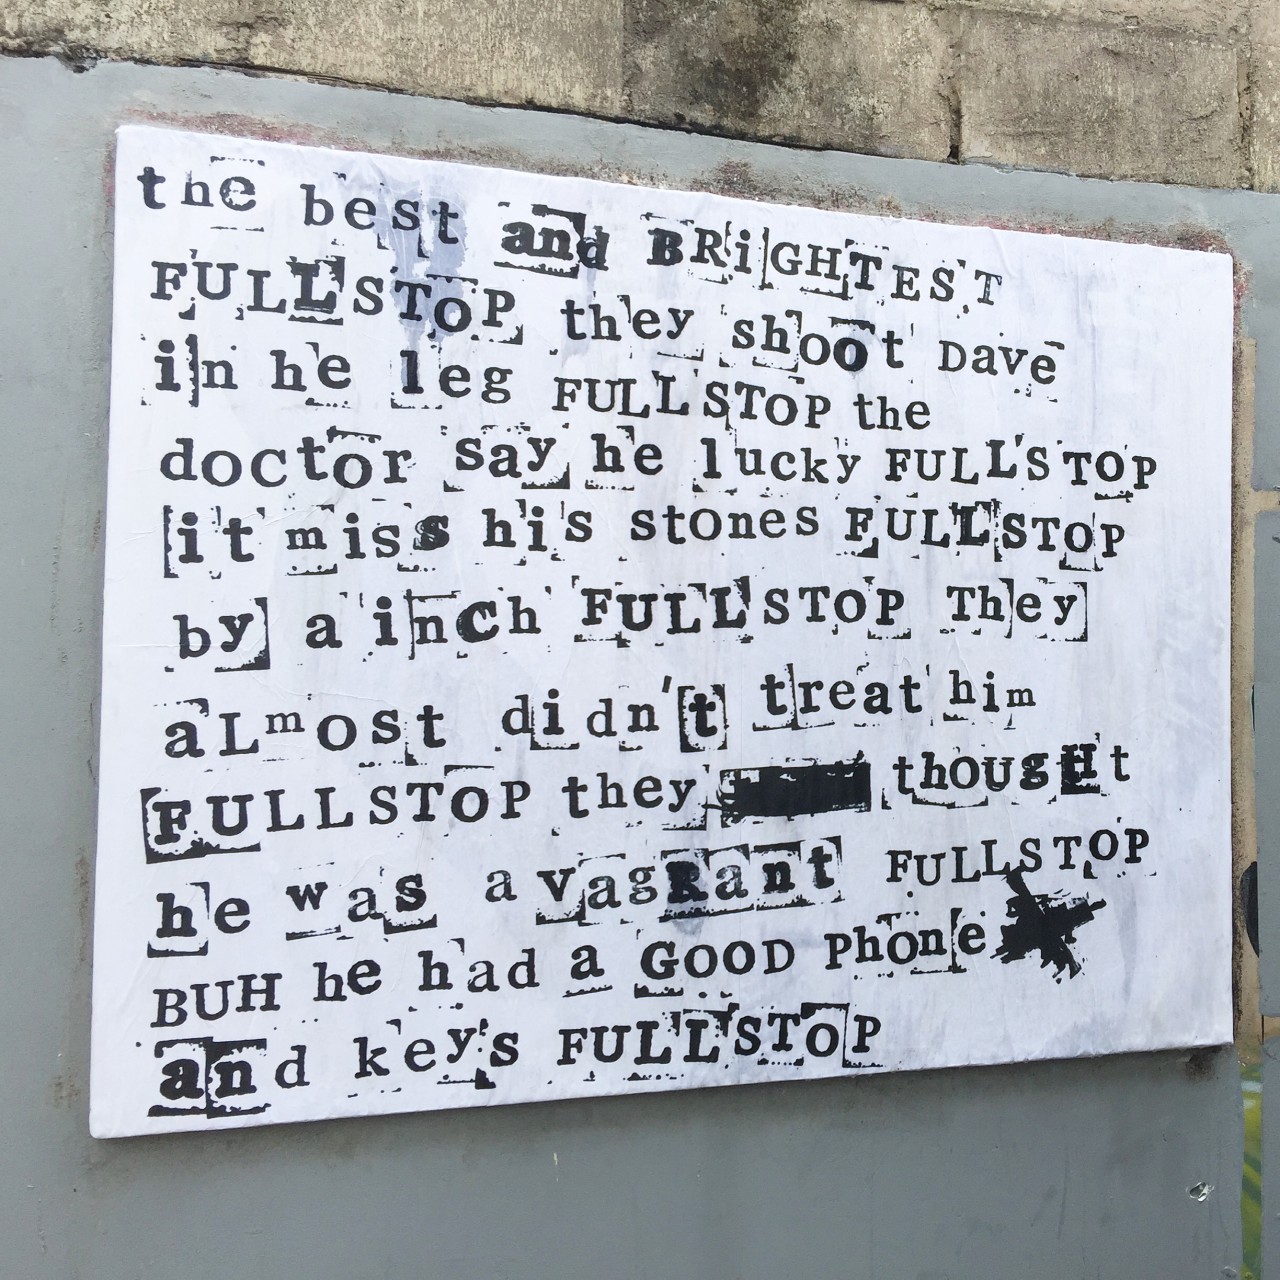 the best and BRiGHTEST
FULLSTOP they shoot Dave
in he leg FULLSTOP the
doctor say he lucky FULLSTOP
it miss his stones FULLSTOP
by a inch FULLSTOP They
aLmost didn't treat him
FULLSTOP they thougHt
he was a vagRant FULLSTOP
BUH he had a GOOD Phone
and keys FULLSTOP